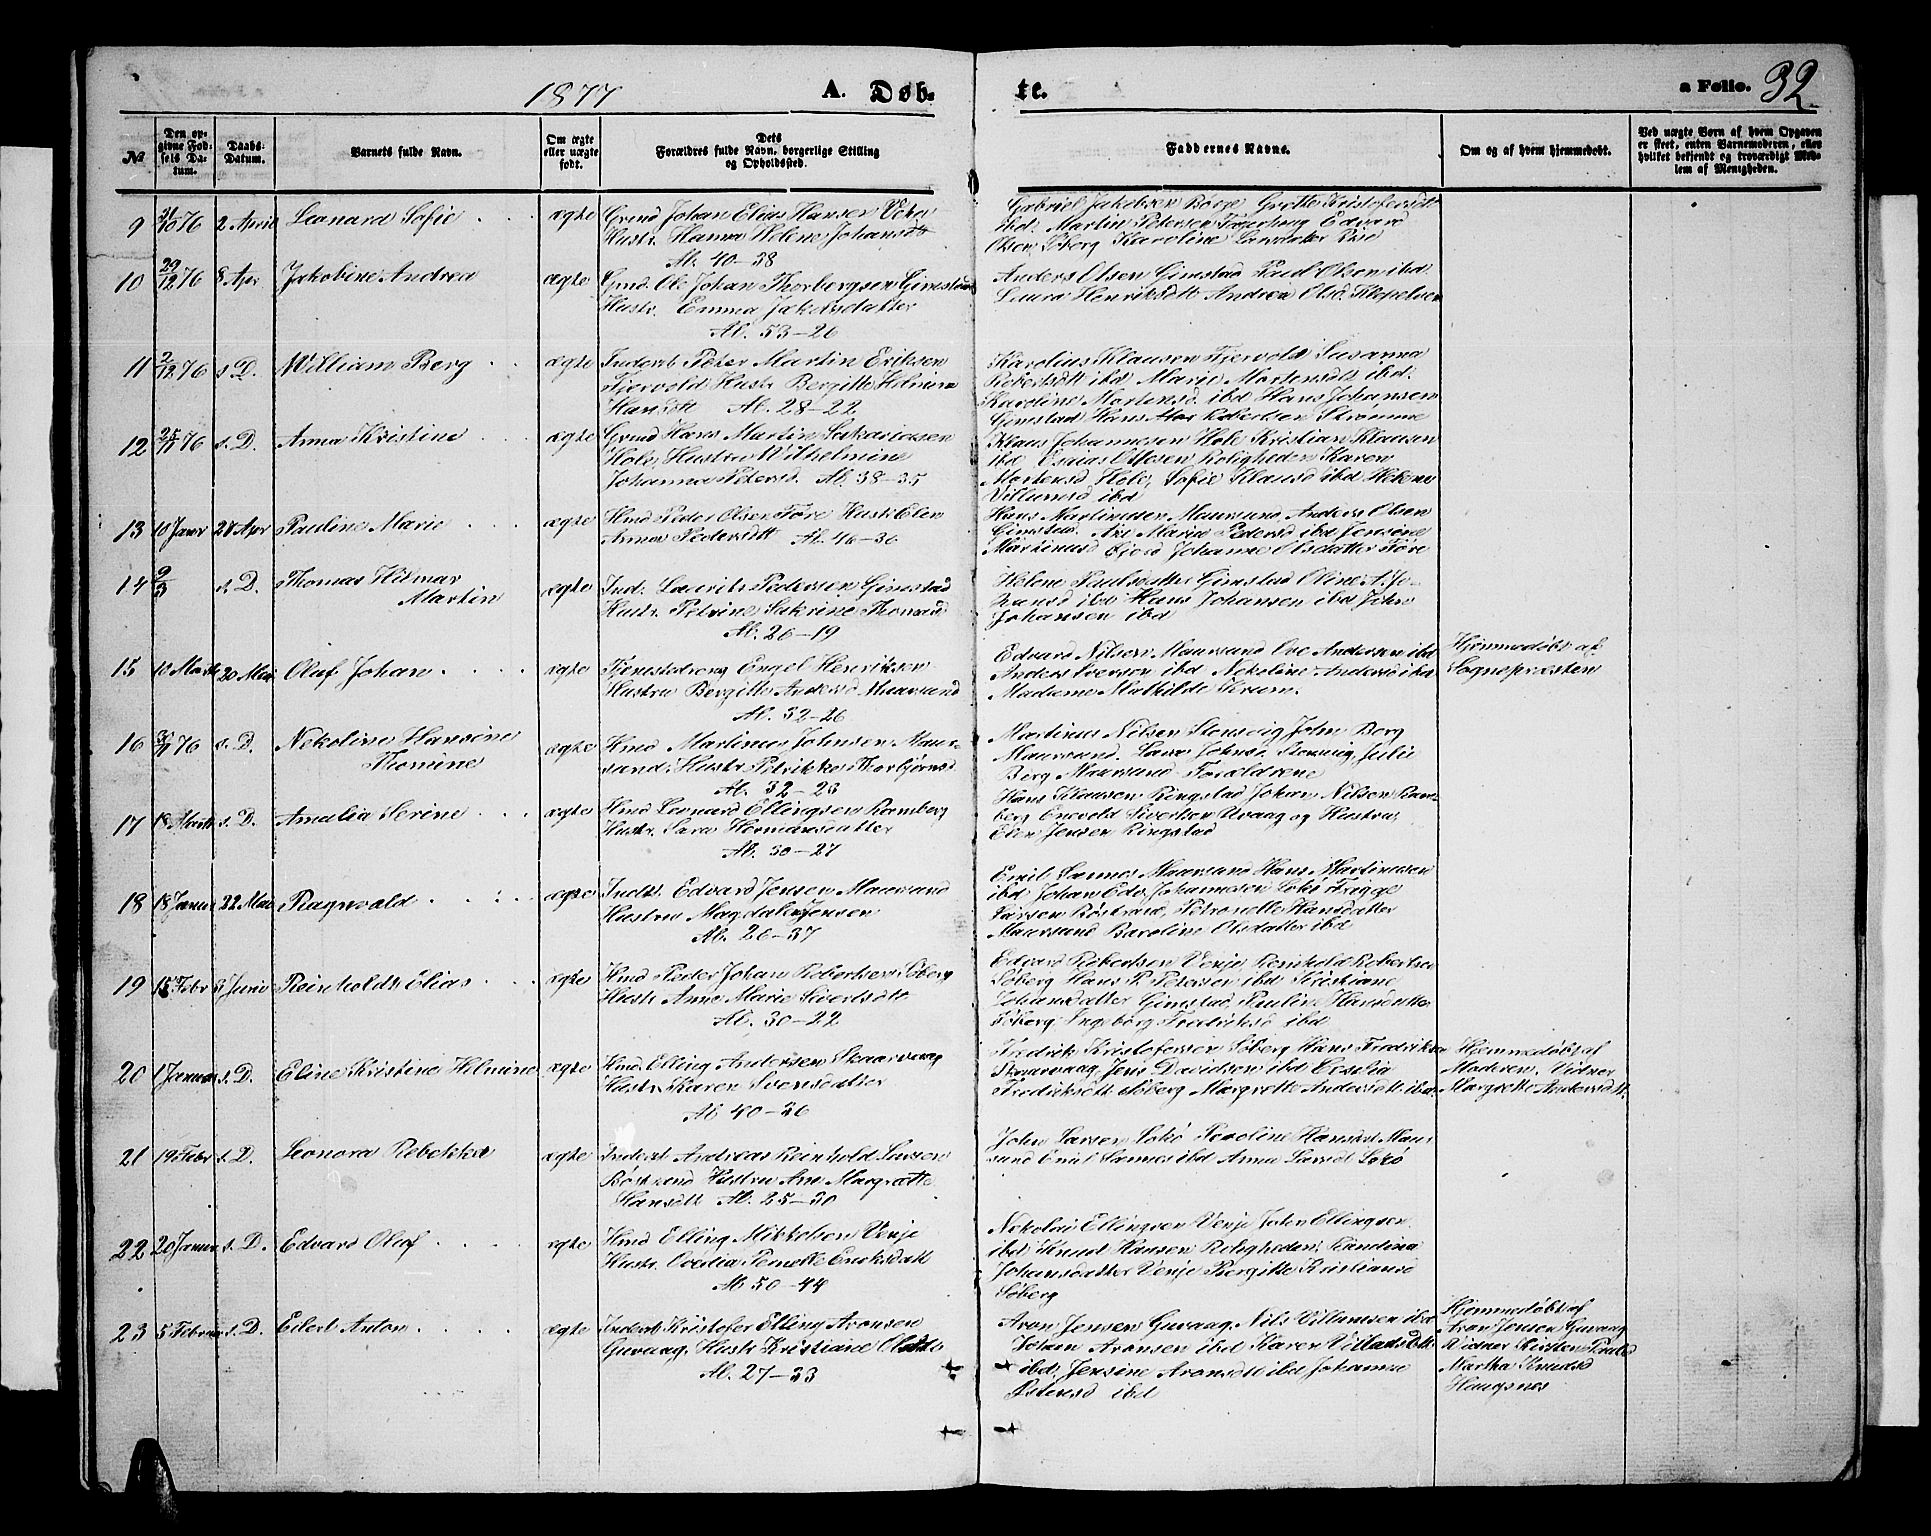 1877
A. Døb-
te.
a Folio. 32.
№
Den op-
givne Fød-
sels Da-
tum.
Daabs-
Datum.
Barnets fulde Navn.
Om ægte
eller uægte
født.
Dets
Forældres fulde Navn, borgerlige Stilling
og Opholdssted.
Faddernes Navne.
Om og af hvem hjemmedøbt.
Ved uægte Børn af hvem Opgaven
er skeet, enten Barnemoderen, eller
hvilket bekjendt og troværdigt Med-
lem af Menigheden.
9 31/10 76 2 April Leonard Sofie ægte Grmd Johan Elias Hansen
Hustr. Hanna Helene Johansdt
Al. 40-38
Gabriel Jakobsen Børge Grette Kristofersdt
ibd. Martin Petersen Fagerhaug Edvard
Olsen, Søberg Karoline Larsdatter Rise
10 29/12 76 8 Apr Jakobine Andrea ægte Grmd. Ole Johan Thorbergsen Gimstad
Hustr. Emma Jakobsdatter
Al. 53-26
Anders Olsen Gimstad Paul Olsen ibd.
Laura Henriksdtt Andrea Olsd.
11 2/12 76 s. D. William Berg ægte Inderst Peter Martin Eriksen
Fjærvold Hustr Bergitte Helmine
Hansdtt Al. 28-22
Karolius Klausen Fjervold Susanna
Robertsdtt ibd Marie Mortensdtt ibd.
Karoline Mortensd. ibd Hans Johansen
Gimstad Hans Robertsen Strømme
12 25/11 76 s. D. Anna Kristine ægte Grmd Hans Martin Sakariasen
Hole, Hustru Wilhelmine
Johanna Petersd. Al. 38-35
Klaus Johannesen Hole Kristian Klausen
ibd Esaias Ottesen Roligheden Karen
Mortensd Hole, Sofie Klausd ibd Helene
Villumsd ibd
13 10 Janr 28 Apr Pauline Marie ægte Hmd Peder Olsen Føre Hustr Elen
Anna Pedersdtt Al. 46-36
Hans Martinusen Maursund Anders Olsen
Gimstad. Ane Maria Pedersd ibd Jensine
Marthinusd Øjord Johanne Olsdatter Føre
14 9/3 s. D. Thomas Hilmar
Martin
ægte Ind. Laurits Pedersen Gimstad
Hustr. Petrine Sakrine Thomasd
Al. 26-19
Helene Paulsdatter Gimstad Oline A. Jo-
hansd ibd Hans Johansen ibd John
Johansen ibd
15 10 Marts 20 Mai Olaf Johan ægte Tjenestedreng Engel Henriksen
Hustru Bergitte Andersd Maursund
Al. 32-26
Edvard Nilsen Maursund Ove Andersen ibd
Anders Iversen ibd Nekoline Andersd ibd
Madame Mathilde Krum.
Hjemmedøbt af
Sognepræsten
16 76 s. D. Nekoline Hansine
Thomine
ægte Hmd Martinus Johnsen Maur-
sund, Hustr Petrikke Thorbjørnsd
Al. 32-23
Martinus Nilsen Steusvig John Berg
Maursund. Sara Johnsd Steusvig, Julie
Berg Maursund Forældrene
17 18 Marts s. D. Amalia Serine ægte Hmd Leonard Ellingsen Ramberg
Hustr. Sara Hermansdatter
Al. 30-27
Hans Klausen Ringstad Johan Nilsen Ram-
berg Enevold Sivertsen Uvaag og Hustru,
Elen Jensen Ringstad
18 18 Januar 22 Mai Ragnvald ægte Indst. Edvard Jensen Maursund
Hustru Magdalena Jensen
Al. 26-37
Emil Sannes Maursund Hans Martinussen
ibd Johan Edv. Johannesen Sokø Trygge
Larsen Bøstrand, Petronelle Hansdatter
Maursund Karoline Olsdatter ibd
19 15 Febr 3 Juni Reinholdt Elias ægte Hmd Peder Johan Robertsen Søberg
Hustr Anne Marie Sivertsdtt
Al. 30-22
Edvard Robertsen Venje, Reinhold Robertsen
Søberg Hans P. Petersen ibd Kristiane
Johansdatter Gimstad, Pauline Hansdatter
Søberg, Ingeborg Fredriksd ibd
20 1 Januar s. D. Eline Kristine Helmine ægte Hmd Elling Andersen Skaarvaag
Hustr Karen Svensdatter
Al 40-36
Fredrik Kristofersen Søberg Hans Fredriksen
Skaarvaag, Jens Davidsen ibd Cecelia
Fredriksdtt Søberg Margrette Andersdtt ibd
Hjemmedøbt af
Moderen, Vidner
Margrette Andersdtt.
21 19 Febr s. D. Leonora Rebekka ægte Inderst Andreas Reinhold Larsen
Bøstrand Hustru Ane Margrette
Hansdtt Al. 25-30
John Larsen Sokø Karoline Hansdat Maur
sund Emil Sannes ibd Anna Larsdt Sokø
22 20 Januar s. D. Edvard Olaf ægte Hmd Elling Mikkelsen Venje
Hustr. Cecilia Pernette Enoksdatt
Al 50-44
Nekolai Ellingsen Venje John Ellingsen
ibd Knud Hansen Roligheden, Randina
Johansdatter Venje Bergitte Kristiansd
Søberg
23 5 Februar s. D. Edert Anton ægte Inderst Kristofer Elling Aronsen
Guvaag, Hustr Kristiane Olsdtt
Al. 27-33
Aron Jensen Guvaag Nils Villumsen ibd
Johan Aronsen ibd Karen Villadsdtt.
ibd, Jensine Aronsdtt ibd Johanna
Petersd ibd
Hjemmedøbt af
Aron Jensen Guvaag
Vidner Kirsten
Martha Knudsd
Haugsnes